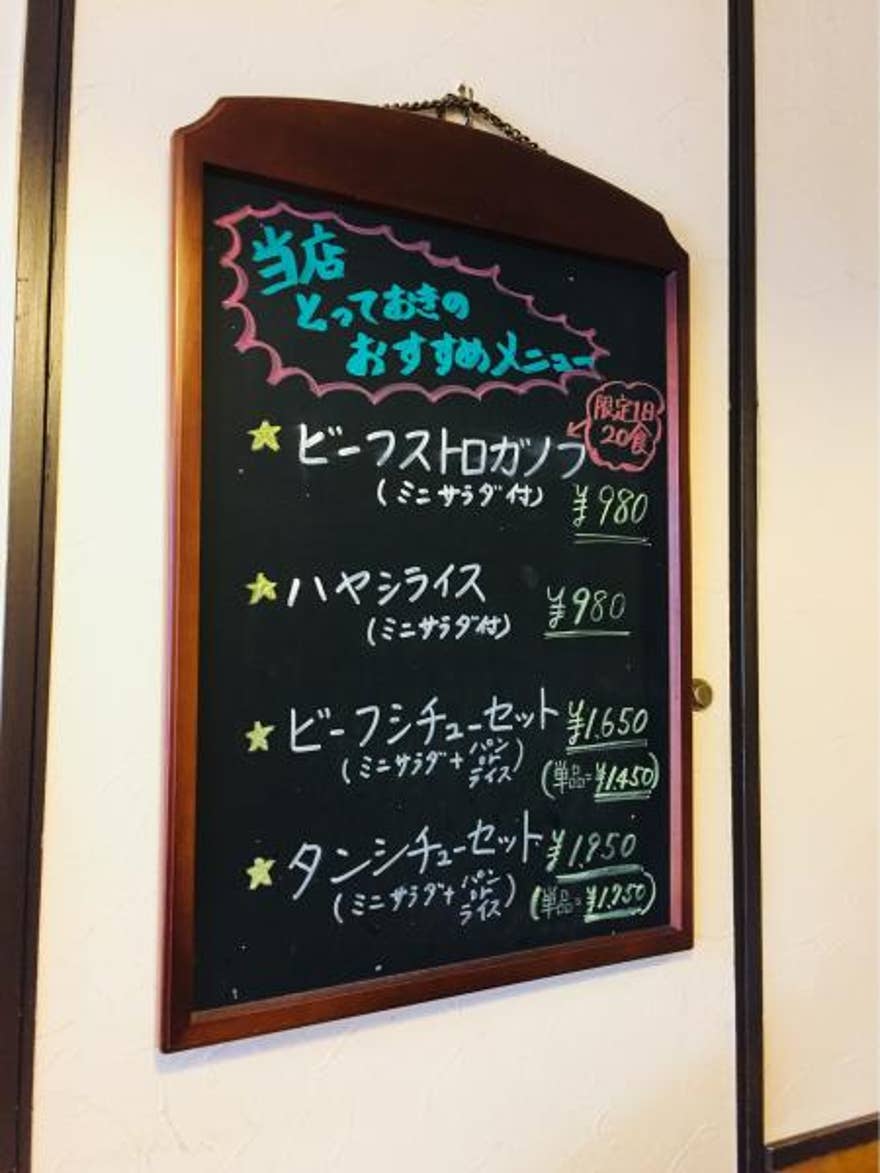 当店
とっておきの
おすすめメニュー
限定1日
20食
★ビーフストロガノフ
(ミニサラダ付) ¥980
★ハヤシライス ¥980
(ミニサラダ付)
★ビーフシチューセット ¥1.650
(ミニサラダ+パンorライス) (単品=¥1.450)
★タンシチューセット ¥1.950
(ミニサラダ+パンorライス) (単品=¥1.750)